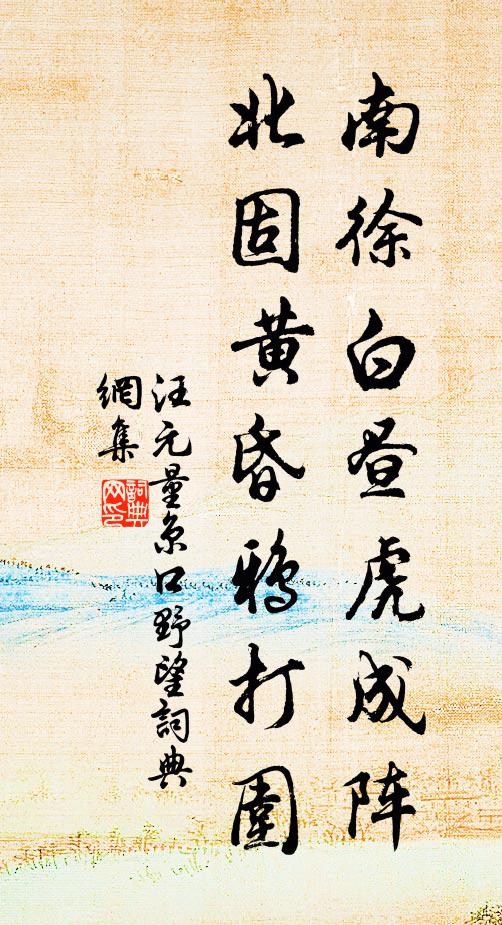 南徐白昼虎成阵
北固黄昏鸦打围
汪元量京口野望詞典
網集
詞典网印